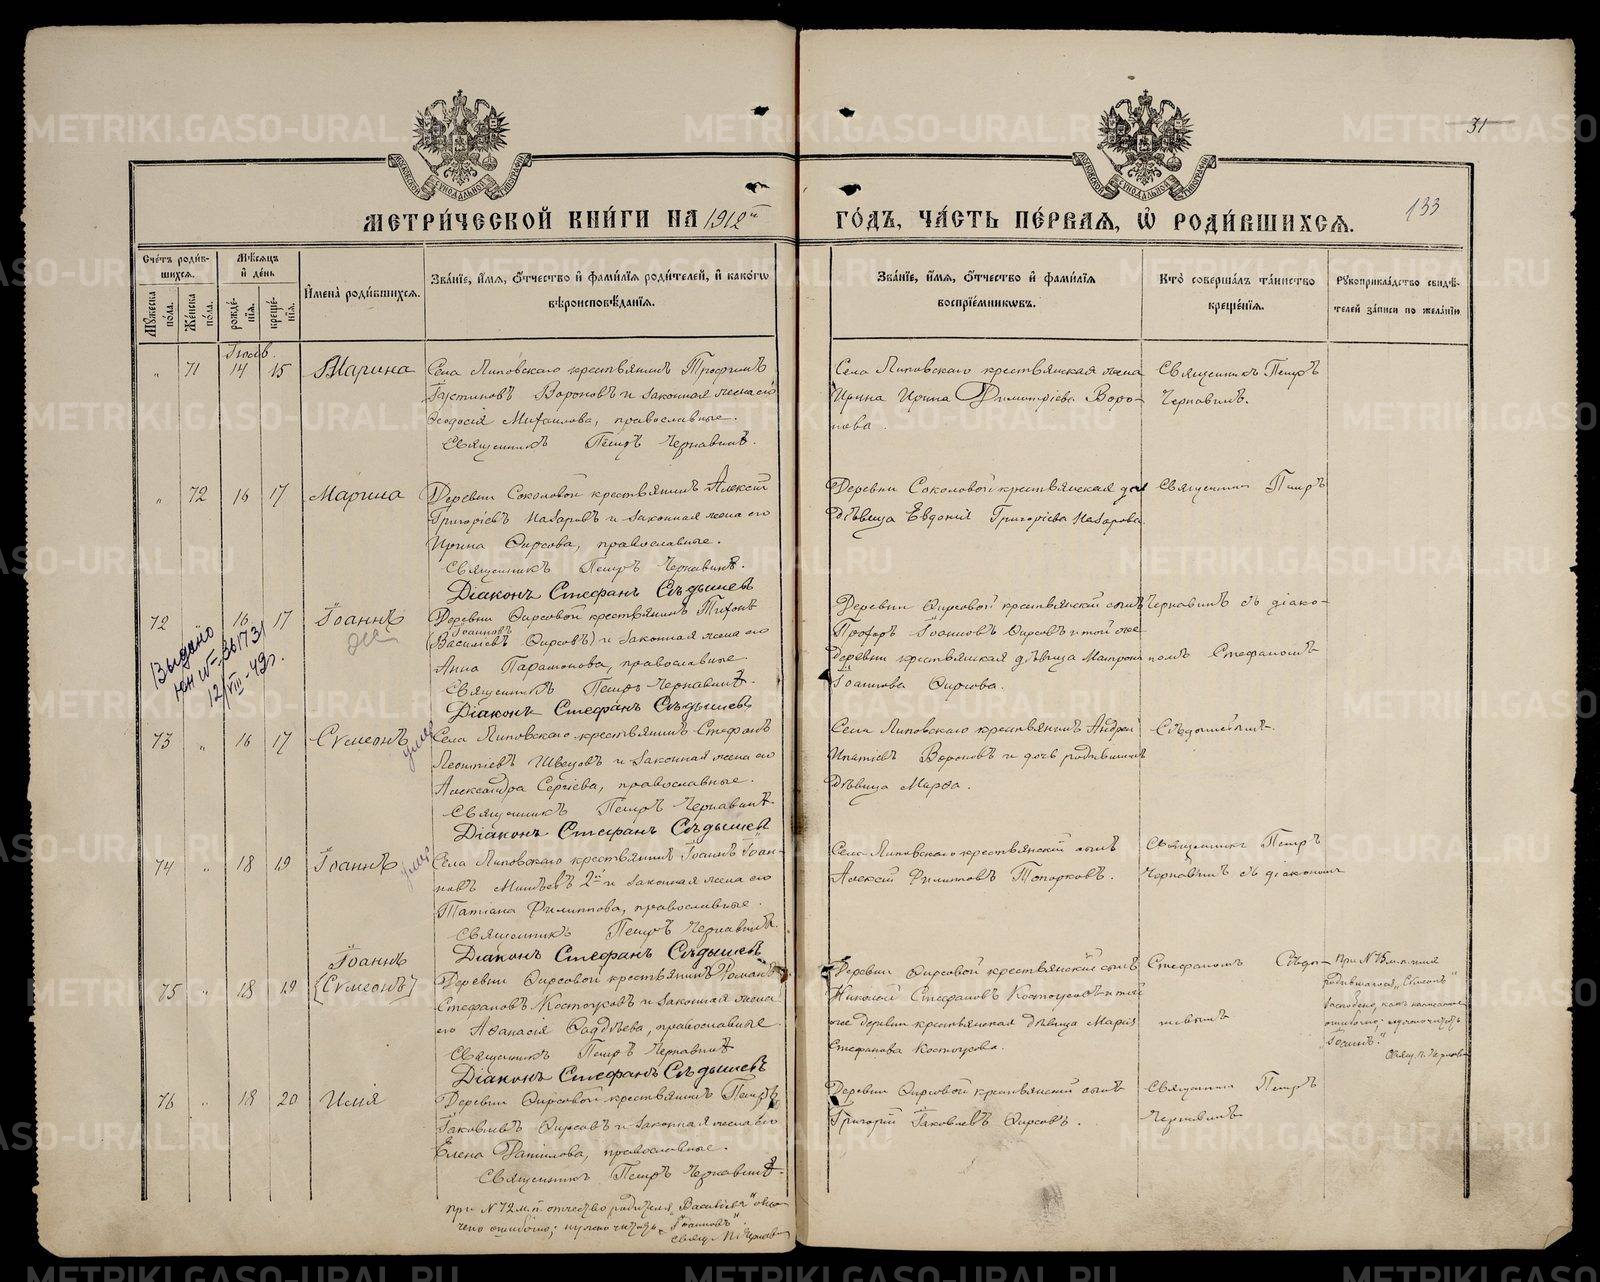 31
133
МЕТРИЧЕСКОЙ КНИГИ НА 1912й ГОДЪ, ЧАСТЬ ПЕРВАЯ, Ѡ РОДИВШИХСЯ.
Счетъ родившихся.
Мужеска пола.
Женска пола.
Мѣсяцъ и день
рожденія.
крещенія.
Имена родившихся.
Званіе, имя, отчество и фамилія родителей, и какого вѣроисповѣданія.
Званіе, имя, отчество и фамилія воспріемниковъ.
Кто совершалъ таинство крещенія.
Рукоприкладство свидѣтелей записи по желанію
"
71
14
15
Марина
Села Липовскаго крестьянинъ Трофимъ
Вороновъ и законная жена его
Ѳеодосія Михаилова, православные.
Священникъ Петръ Чернавинъ.
Села Липовскаго крестьянская жена
Ирина Ирина Димитріева Воро-
нова.
Священникъ Петръ
Чернавинъ.
"
72
16
17
Марина
Деревни Соколовой крестьянинъ Алексій
Григоріевъ Назаровъ и законная жена его
Ирина Фирсова, православные.
Священникъ Петръ Чернавинъ.
Діаконъ Стефанъ Сѣдышевъ
Деревни Соколовой крестьянская
дѣвица Евдокія Григоріева Назарова.
Священникъ Петръ
72
16
17
Іоаннъ
Выдано
12/VIII-42г.
Деревни Фирсовой крестьянинъ Тихонъ
Іоанновъ
(Васильевъ Фирсовъ) и законная жена его
Анна Парамонова, православные
Священникъ Петръ Чернавинъ.
Діаконъ Стефанъ Сѣдышевъ
Деревни Фирсовой крестьянскій сынъ
Іоанновъ Фирсовъ и той же
деревни крестьянская дѣвица Матрона
Іоаннова Фирсова.
Чернавинъ съ діако-
номъ Стефаномъ
73
"
16
17
Сѵмеонъ
умер
Села Липовскаго крестьянинъ Стефанъ
Леонтіевъ Швецовъ и законная жена его
Александра Сергіева, православные.
Священникъ Петръ Чернавинъ
Діаконъ Стефанъ Сѣдышевъ
Села Липовскаго крестьянинъ Андрей
Ипатіевъ Вороновъ и дочь родившаяся
дѣвица Марѳа.
Сѣдышевымъ.
74
"
18
19
Іоаннъ
умер
Села Липовскаго крестьянинъ Іоаннъ Іоан-
новъ 2й и законная жена его
Татіана Филиппова, православные.
Священникъ Петръ Чернавинъ.
Діаконъ Стефанъ Сѣдышевъ
Села Липовскаго крестьянскій сынъ
Алексій Филипповъ Топорковъ.
Священникъ Петръ
Чернавинъ съ діакономъ
75
"
18
19
Іоаннъ
[Сѵмеонъ]
Деревни Фирсовой крестьянинъ Романъ
Стефановъ Костоусовъ и законная жена
его Аѳанасія Ѳаддѣева, православные.
Священникъ Петръ Чернавинъ
Діаконъ Стефанъ Сѣдышевъ
Деревни Фирсовой крестьянскій сынъ
Николай Стефановъ Костоусовъ и той
же деревни крестьянская дѣвица Марія
Стефанова Костоусова.
Стефаномъ Сѣды-
шевымъ
При №75 м. п. имя
родившагося „Сѵмеонъ"
заскоблено, какъ написанное
ошибочно; нужно читать
„Іоаннъ."
Свящ. П. Чернавинъ
76
"
18
20
Илія
Деревни Фирсовой крестьянинъ Петръ
Іаковлевъ Фирсовъ и законная жена его
Елена Данилова, православные.
Священникъ Петръ Чернавинъ.
Деревни Фирсовой крестьянскій сынъ
Григорій Іаковлевъ Фирсовъ.
Священникъ Петръ
Чернавинъ
При №72 м. п. отчество родителя „Васильевъ" озна-
чено ошибочно; нужно читать „Іоанновъ".
Свящ. П. Чернавинъ
METRIKI.GASO-URAL.RU